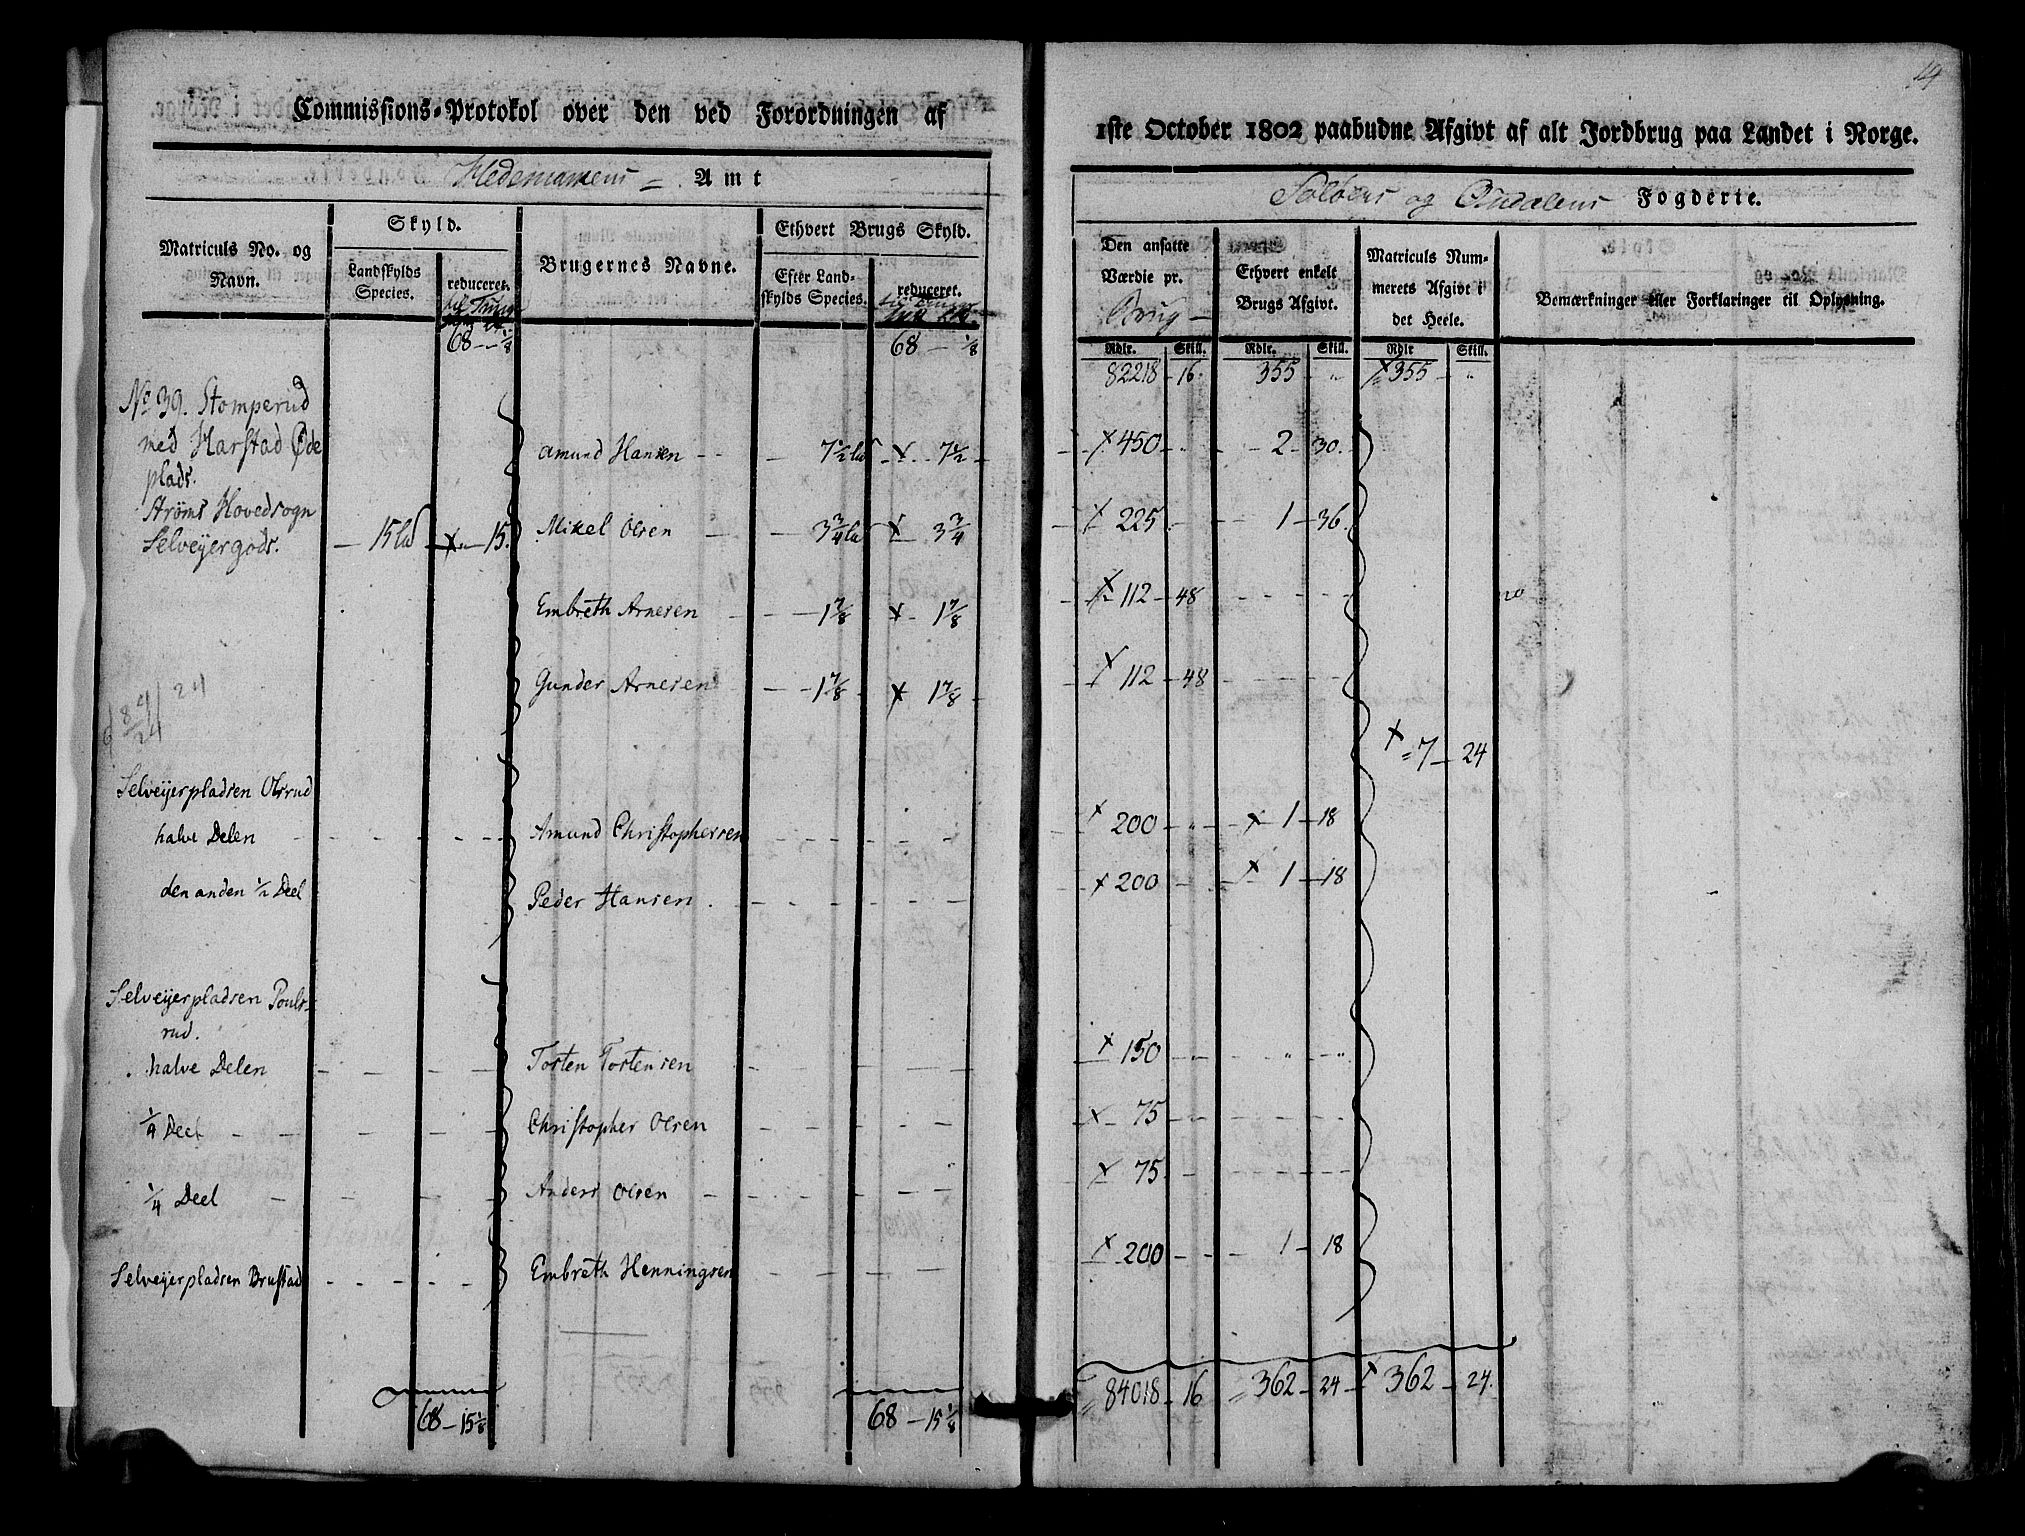 Commissions-Protokol over den ved Forordningen af
Hedemarkens Amt
Matriculs No. og Navn.
Skyld.
Landskylds Species.
reduceret.
Brugernes Navne.
Ethvert Brugs Skyld.
Efter Landskylds Species.
reduceret.
68 - 1/8
68 - 1/8
No 39. Stomperud
med Harstad Øde
plads.
Amund Hansen - - 7 1/2 lud x - 7 1/2
Strøms Hovedsogn
Selveyergods. - 15 lud x - 15.
Mikel Olsen - - 3 3/4 lud x 3 3/4
Embreth Arnesen - - 1 7/8 x - 1 7/8
Gunder Arnesen - - 1 7/8 x 1 7/8
24
Selveyerpladsen Olsrud
halve Delen - - - Amund Christophersen
den anden 1/2 Deel Peder Hansen
Selveyerpladsen Pouls-
rud.
halve Delen - - - Torsten Torstensen
1/4 Deel - - - Christopher Olsen
1/4 Deel - - - Anders Olsen
Selveyerpladsen Brustad - - - Embreth Henningsen
68 - 15 1/8
68 - 15 1/8
14
1ste October 1802 paabudne Afgivt af alt Jordbrug paa Landet i Norge.
Soløens og Oudalens Fogderie.
Den ansatte Værdie pr. Brug
Ethvert enkelt Brugs Afgivt.
Matriculs Nummerets Afgivt i det Heele.
Bemærkninger eller Forklaringer til Oplysning.
Rdlr. Skill. Rdlr. Skill. Rdlr Skill.
82218 - 16. 355 - " x 355 - "
x 450 - " - 2 - 30.
x 225 - - 1 - 36.
x 112 - 48 - - -
x 112 - 48 - - -
x = 7 - 24
x 200 - " - x 1 - 18
x 200 - - x 1 - 18
x 150 - " " - "
x 75 - - -
x 75 - - -
x 200 - - 1 - 18
= 84018 - 16 = 362 - 24 - x 362 - 24.